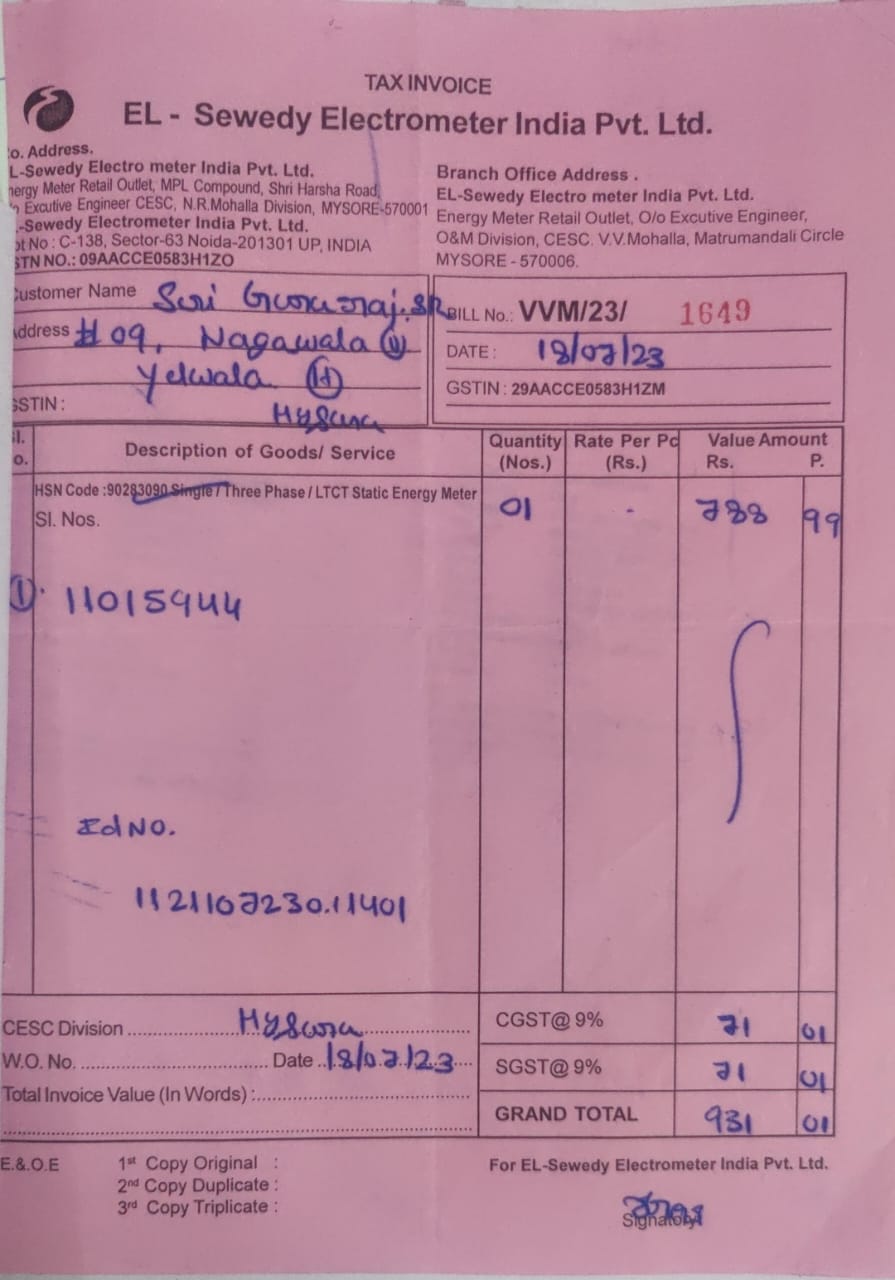 TAX INVOICE
EL - Sewedy Electrometer India Pvt. Ltd.
o. Address.
L-Sewedy Electro meter India Pvt. Ltd.
nergy Meter Retail Outlet, MPL Compound, Shri Harsha Road,
Excutive Engineer CESC, N.R.Mohalla Division, MYSORE-570001
.-Sewedy Electrometer India Pvt. Ltd.
ot No : C-138, Sector-63 Noida-201301 UP, INDIA
STN NO.: 09AACCE0583H1ZO
Branch Office Address .
EL-Sewedy Electro meter India Pvt. Ltd.
Energy Meter Retail Outlet, O/o Excutive Engineer,
O&M Division, CESC. V.V.Mohalla, Matrumandali Circle
MYSORE - 570006.
Customer Name Sri Gururaj.SR
Address #09, Nagawala (V)
Yelwala (H)
GSTIN : Mysuru
BILL No.: VVM/23/ 1649
DATE : 18/07/23
GSTIN : 29AACCE0583H1ZM
Sl. No. Description of Goods/ Service Quantity (Nos.) Rate Per Pc (Rs.) Value Amount Rs. P.
HSN Code :90283090 Single / Three Phase / LTCT Static Energy Meter 01 - 788 99
Sl. Nos.
1. 11015944
Ed No.
1121107230.11401
CESC Division Mysuru
W.O. No. Date 18/07/23
Total Invoice Value (In Words) :
CGST@ 9% 71 01
SGST@ 9% 71 01
GRAND TOTAL 931 01
E.&.O.E
1st Copy Original :
2nd Copy Duplicate :
3rd Copy Triplicate :
For EL-Sewedy Electrometer India Pvt. Ltd.
Signatory